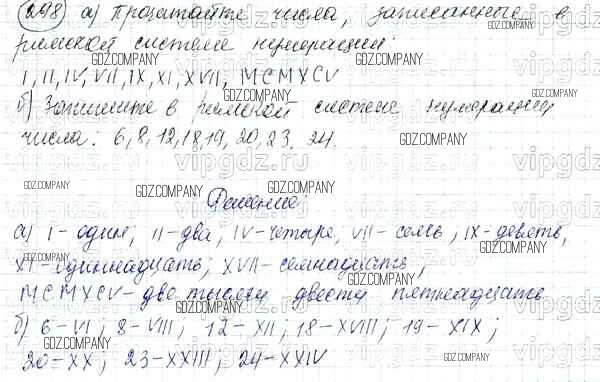 298 а) Прочитайте числа, записанные в
римской системе нумерации:
I, II, IV, VII, IX, XI, XVII, MCMXCV
б) Запишите в римской системе нумерации
числа: 6, 8, 12, 18, 19, 20, 23, 24.
Решение:
а) I - один, II - два, IV - четыре, VII - семь, IX - девять,
XI - одиннадцать; XVII - семнадцать;
MCMXCV - две тысячи двести пятнадцать
б) 6 - VI; 8 - VIII; 12 - XII; 18 - XVIII; 19 - XIX;
20 - XX; 23 - XXIII; 24 - XXIV
GDZ.COMPANY
vipgdz.ru